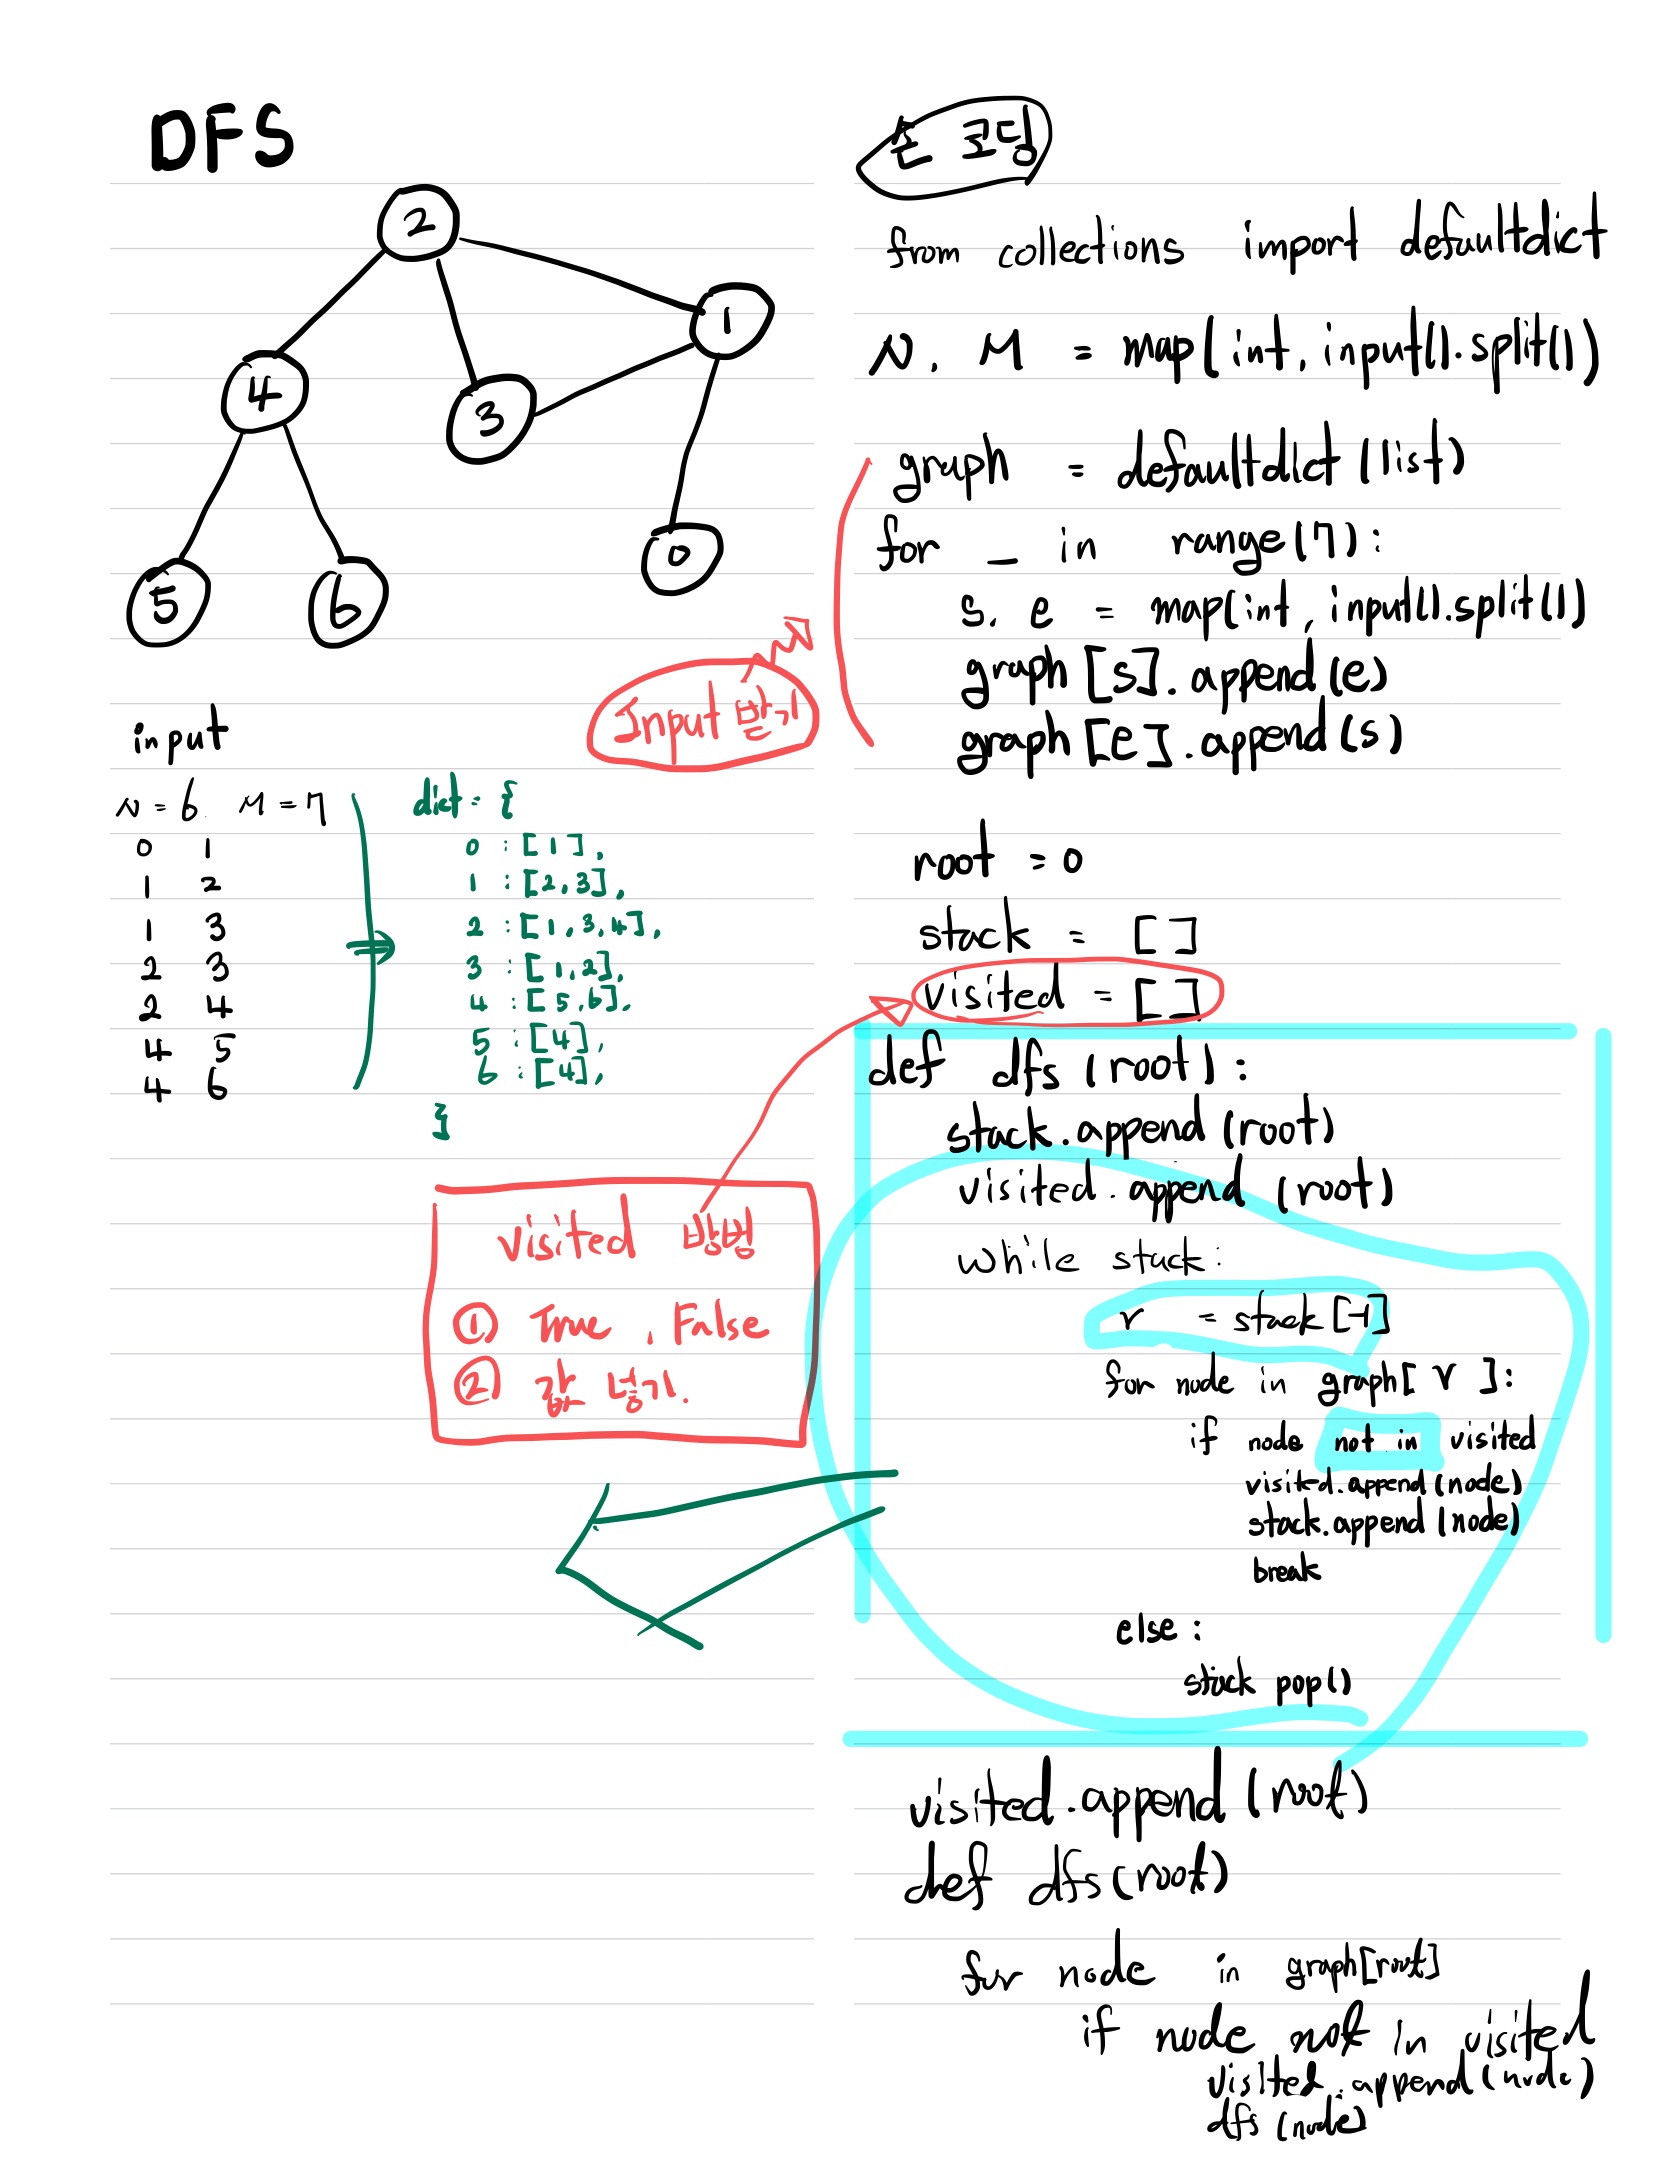 DFS
2
1
4
3
0
5
6
input
N = 6. M = 7
0 1
1 2
1 3
2 3
2 4
4 5
4 6
dict = {
0 : [1],
1 : [2,3],
2 : [1,3,4],
3 : [1,2],
4 : [5,6],
5 : [4],
6 : [4],
}
Input 받기
visited 방법
① True, False
② 값 넣기.
손 코딩
from collections import defaultdict
N. M = map(int, input().split())
graph = defaultdict(list)
for _ in range(7):
s. e = map(int, input().split())
graph[s].append(e)
graph[e].append(s)
root = 0
stack = []
visited = []
def dfs(root):
stack.append(root)
visited.append(root)
while stack:
r = stack[-1]
for node in graph[r]:
if node not in visited
visited.append(node)
stack.append(node)
break
else:
stack pop()
visited.append(root)
def dfs(root)
for node in graph[root]
if node not in visited
visited.append(node)
dfs(node)